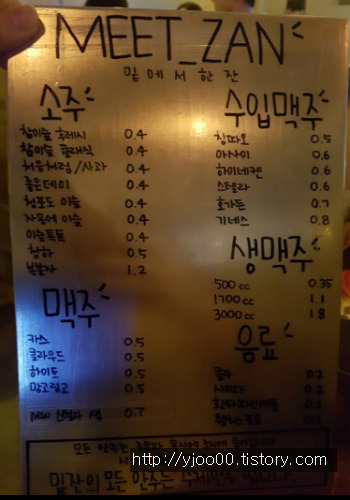 MEET_ZAN
밑에서한잔
소주
참이슬 후레쉬 0.4
참이슬 클래식 0.4
처음처럼/사과 0.4
좋은데이 0.4
청포도 이슬 0.4
자몽에 이슬 0.4
이슬톡톡 0.4
청하 0.5
복분자 1.2
맥주
카스 0.5
클라우드 0.5
하이트 0.5
망고링고 0.5
new 스텔라 생 0.7
수입맥주
칭따오 0.5
아사이 0.6
하이네켄 0.6
스텔라 0.6
호가든 0.7
기네스 0.8
생맥주
500cc 0.35
1700cc 1.1
3000cc 1.8
음료
콜라 0.2
사이다 0.2
모든 안주는 주문과 동시에
밑잔의 모든 안주는
http://yjoo00.tistory.com